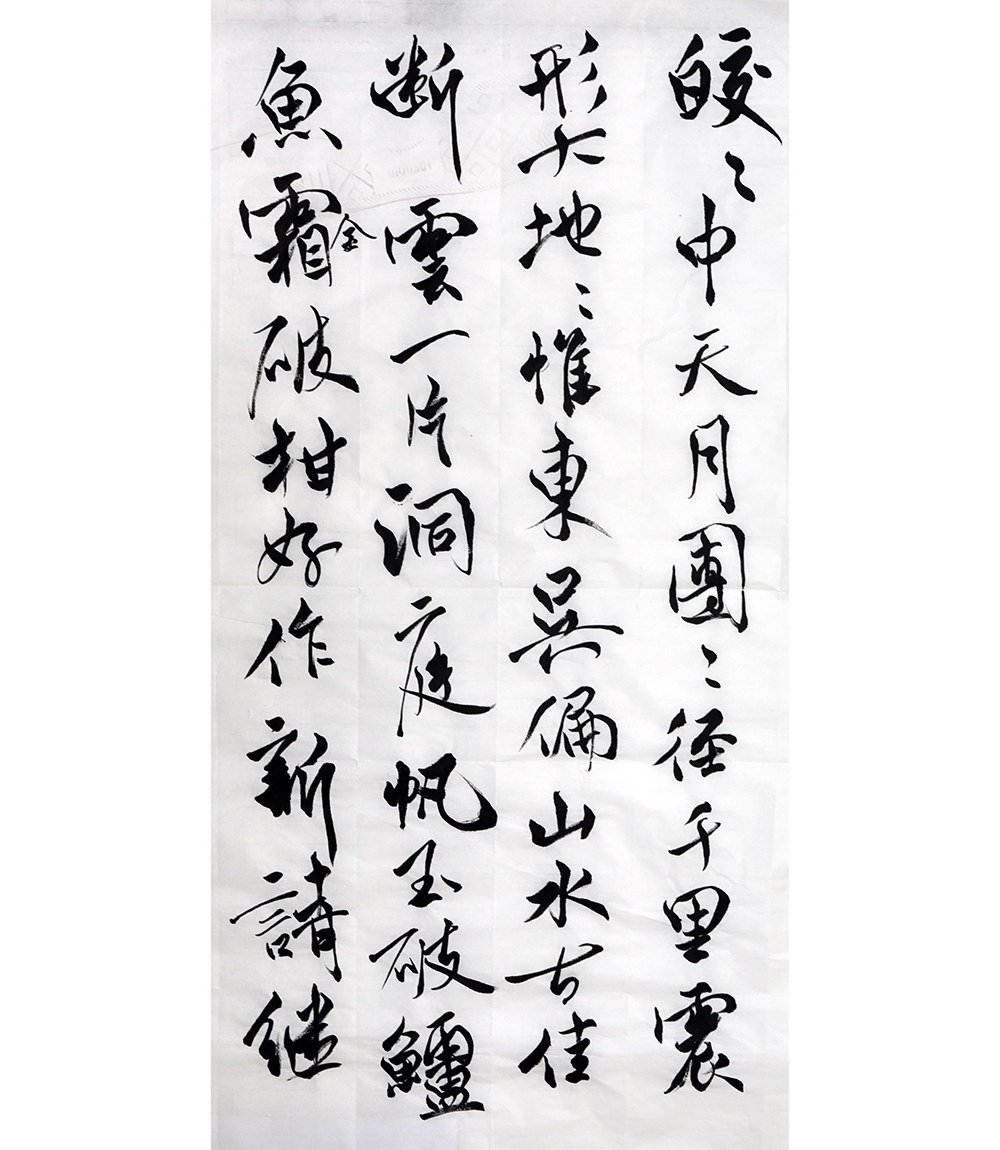 皎〻中天月團〻径千里震
形大地〻惟東呉偏山水古佳
断雲一片洞庭帆玉破鱸
魚霜金破柑好作新請继